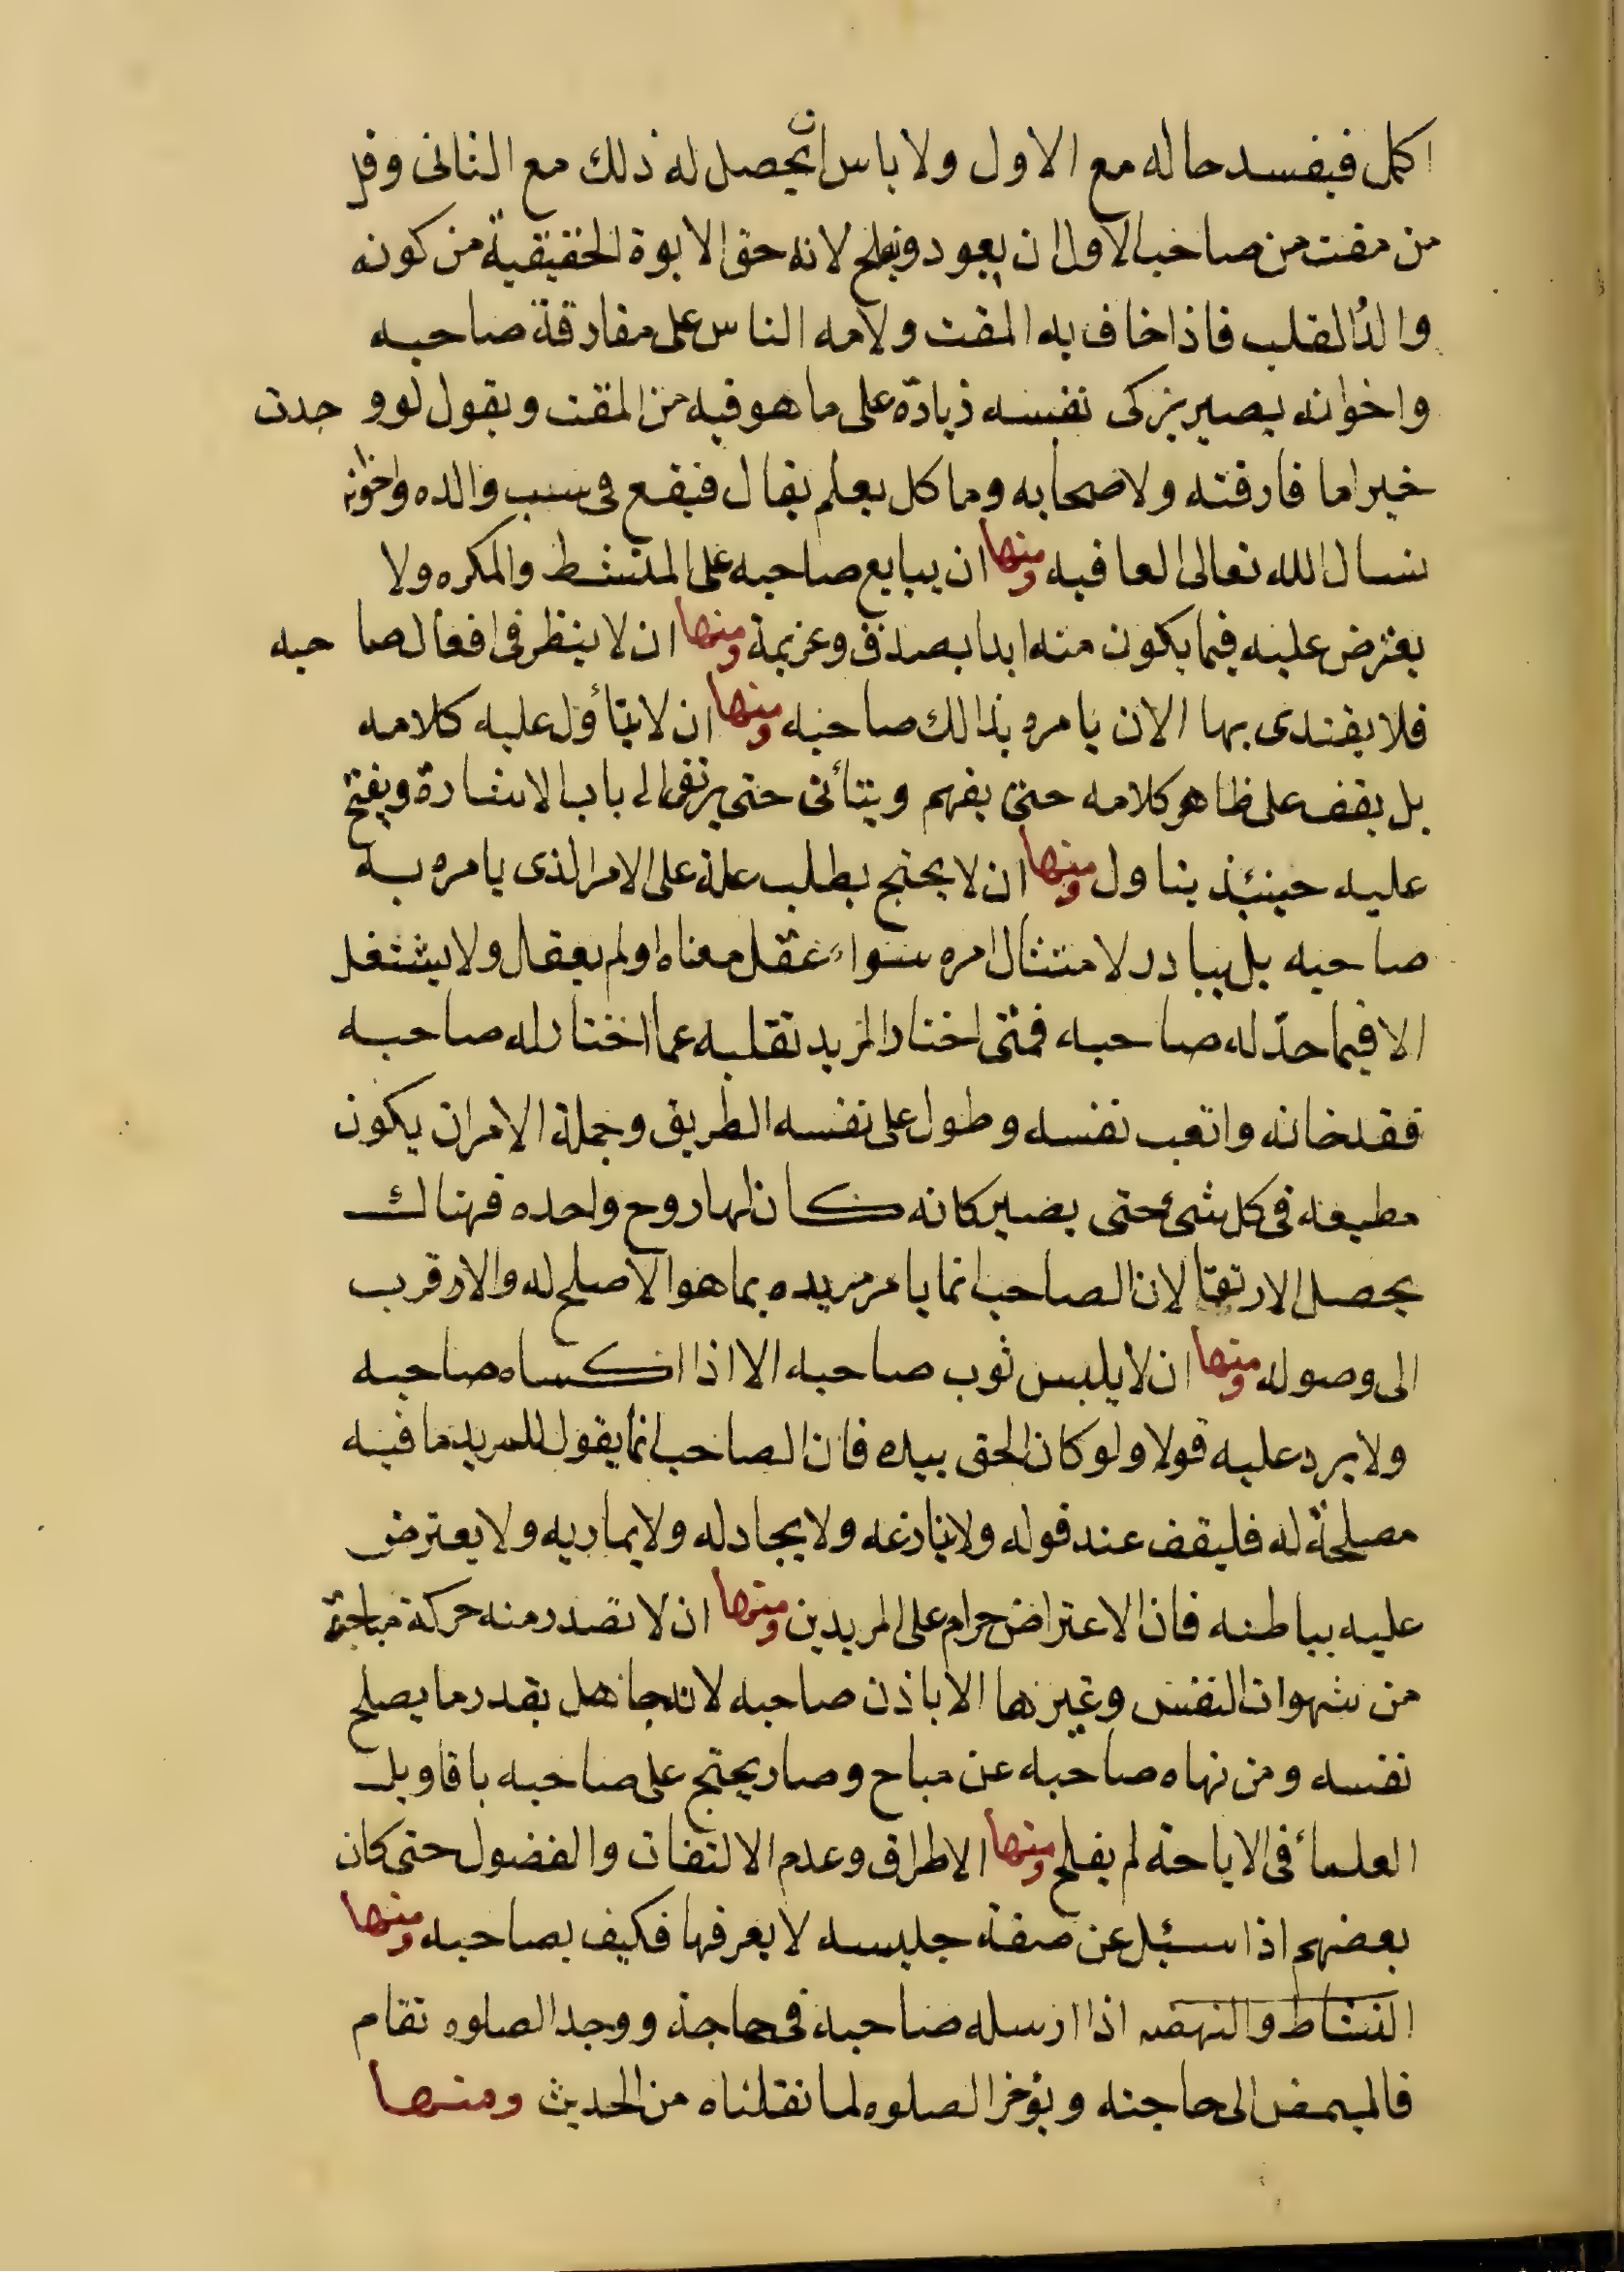 اكمل فيفسد حاله مع الاول ولا باس ان يحصل له ذلك مع الثانى وقل
من مقت من صاحب الاول ان يعود ويفلح لانه حق الابوة الحقيقية من كونه
والدُ القلب فاذا خاف به المقت ولامه الناس على مفارقة صاحبه
واخوانه يصير يزكى نفسه زيادة على ما هو فيه من المقت ويقول لو وجدت
خيرا ما فارقته ولا صحابه وما كل يعلم يقال فيقع فى سب والده واخوانه
نسال الله تعالى العافيه ومنها ان يبايع صاحبه على المنشط والمكره ولا
يعترض عليه فيما يكون منه ابدا بصدق وعزيمة ومنها ان لا ينظر فى افعال صاحبه
فلا يقتدى بها الا ان يامره بذالك صاحبه ومنها ان لا يتأول عليه كلامه
بل يقف على ظاهر كلامه حتى يفهم ويتأنى حتى يرتقى الى باب الاشارة ويفتح
عليه حينئذ يناول ومنها ان لا يحتج بطلب علة على الامر الذى يامره به
صاحبه بل يبادر لامتثال امره سواء عقل معناه او لم يعقل ولا يشتغل
الا فيما حدّ له صاحبه فمتى اختار المريد تقلبه عما اختار له صاحبه
فقد خانه واتعب نفسه وطول على نفسه الطريق وجملة الامر ان يكون
مطيعه فى كل شئ حتى يصير كانه كان لها روح واحده فهنالك
يحصل الارتقا لان الصاحب انما يامر مريده بما هو الاصلح له والاقرب
الى وصوله ومنها ان لا يلبس ثوب صاحبه الا اذا اكساه صاحبه
ولا يرد عليه قولا ولو كان الحق بيده فان الصاحب انما يقول للمريد ما فيه
مصلحة له فليقف عند قوله ولا ينازعه ولا يجادله ولا يماريه ولا يعترض
عليه بباطنه فان الاعتراض حرام على المريدين ومنها ان لا تصدر منه حركة مباحة
من شهوات النفس وغيرها الا باذن صاحبه لانه جاهل بقدر ما يصلح
نفسه ومن نهاه صاحبه عن مباح وصار يحتج على صاحبه باقاويل
العلمأ فى الاباحة لم يفلح ومنها الاطراق وعدم الالتفات والفضول حتى كان
بعضهم اذا سئل عن صفة جليسه لا يعرفها فكيف بصاحبه ومنها
النشاط والنهضه اذا ارسله صاحبه فى حاجة ووجد الصلوه تقام
فاليمض الى حاجته ويؤخر الصلوه لما نقلناه من الحديث ومنها